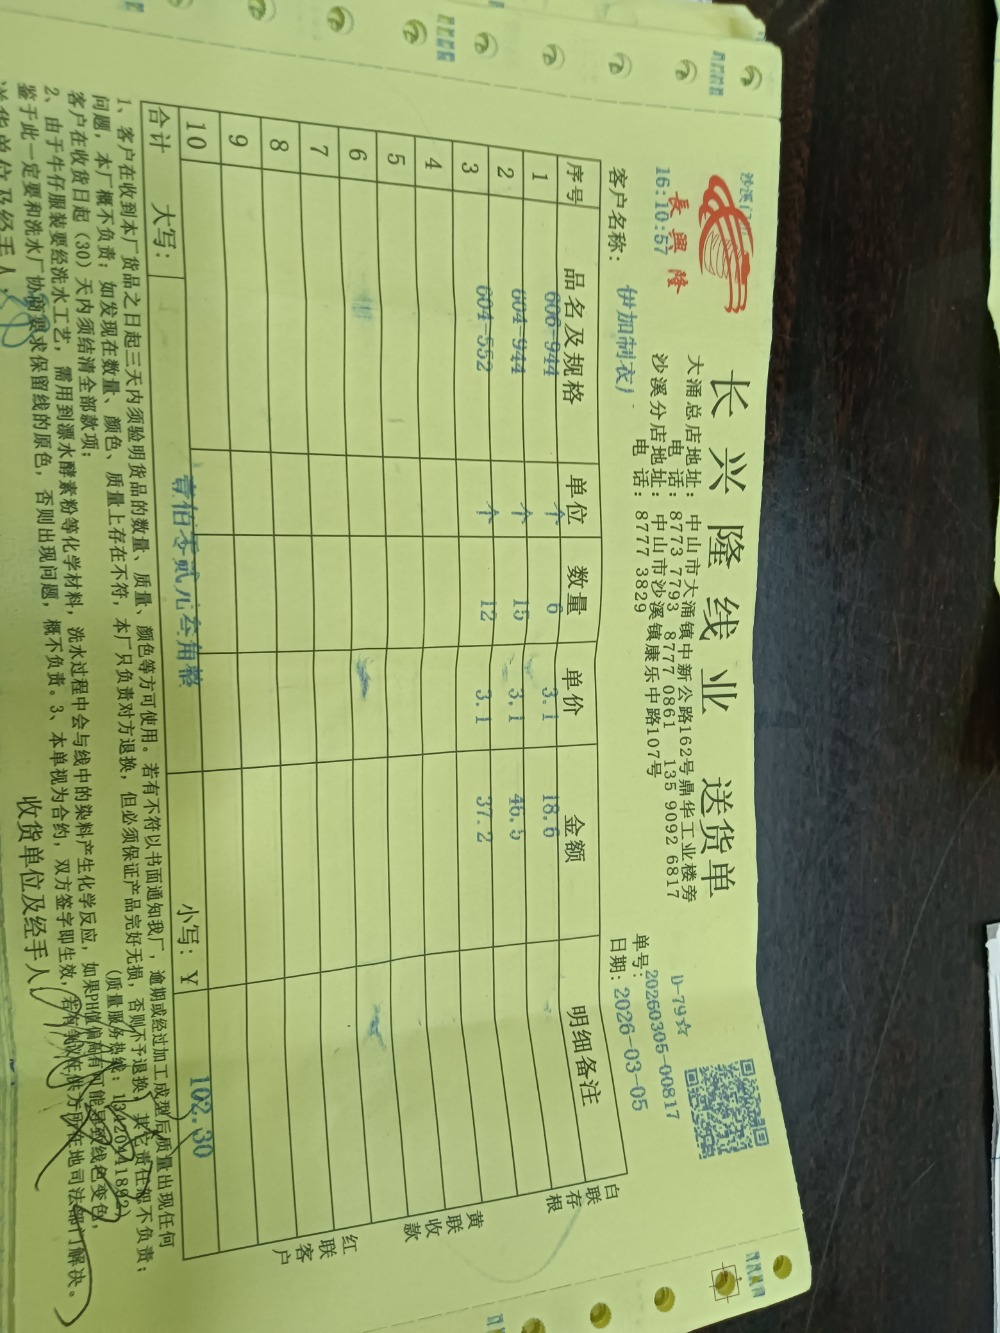 长兴隆线业 送货单
長興隆
16:10:57
大涌总店地址：中山市大涌镇中新公路162号鼎华工业楼旁
电 话：8773 7793 8777 0861 135 9092 6817
沙溪分店地址：中山市沙溪镇康乐中路107号
电 话：8777 3829
D-79☆
单号：20260305-00817
客户名称：伊加制衣厂
日期：2026-03-05
序号 品名及规格 单位 数量 单价 金额 明细备注
1 606-944 个 6 3.1 18.6
2 604-944 个 15 3.1 46.5
3 604-552 个 12 3.1 37.2
4
5
6
7
8
9
10
合计 大写：壹佰零贰元叁角整 小写：￥ 102.30
白联存根
黄联收款
红联客户
1、客户在收到本厂货品之日起三天内须验明货品的数量、质量、颜色等方可使用。若有不符以书面通知我厂，逾期或经过加工成型后质量出现任何
问题，本厂概不负责；如发现在数量、颜色、质量上存在不符，本厂只负责对方退换，但必须保证产品完好无损，否则不予退换，其它责任概不负责；
客户在收货日起（30）天内须结清全部款项； （质量服务热线：13420441892）
2、由于牛仔服装要经洗水工艺，需用到漂水酵素粉等化学材料，洗水过程中会与线中的染料产生化学反应，如果PH值偏高有可能导致线色变色，
鉴于此一定要和洗水厂协商要求保留线的原色，否则出现问题，概不负责。3、本单视为合约，双方签字即生效，若有争议在供方所在地司法部门解决。
送货单位及经手人： 收货单位及经手人